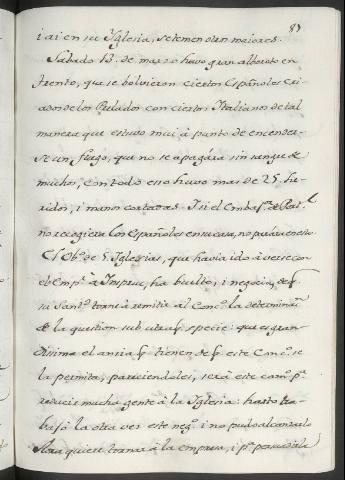 83
i ai en su Yglesia, se temen otros maiores.
Sabado 13. de marzo huvo gran alboroto en
Trento, que se bolvieron ciertos Españoles cri-
ados de los Prelados con ciertos Italianos de tal
manera que estuvo mui à punto de encender-
se un fuego, que no se apagára sin sangre de
muchos, con todo esso huvo mas de 25. he-
ridos, i manos cortadas. I si el Embax.r de Port.l
no recogiera los Españoles en su casa, no parára en esto.
El Ob.o de 5 Iglesias, que havia ido à verse con
el Emp.r à Inspruc, ha buelto, i negocia, de q
su Sant.d torne à remitir al Conc.o la determinac.n
de la question sub utraq specie: que es gran-
disima el ansia q tienen de q este Conc.o se
la permita, pareciendoles, será este camo p.a
reducir mucha gente à la Iglesia: harto tra-
bajó la otra vez este neg.o i no pudo alcanzarlo
Aora quiere tornar à la empresa, i p.a persuadirla